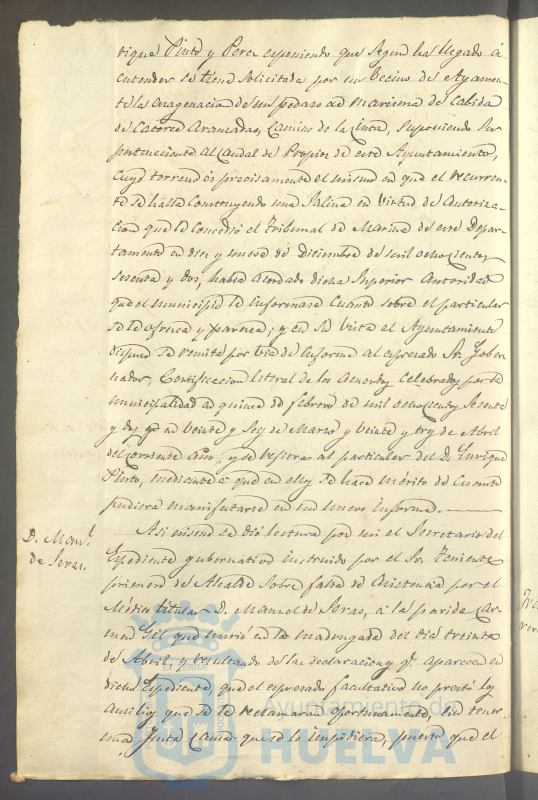 rique Pinto y Perez esponiendo que segun ha llegado á
entender se tiene solicitada por un vecino de Ayamon-
te la enagenacion de un pedazo de marisma de cabida
de catorce aranzadas, camino de la Cinta, suponiendo ser
perteneciente al caudal de Propios de este Ayuntamiento,
cuyo terreno es precisamente el mismo en que el recurren-
te se halla construyendo una salina en virtud de autoriza-
cion que le concedió el Tribunal de Marina de este Depar-
tamento en diez y nueve de Diciembre de mil ochocientos
sesenta y dos, habia acordado dicha Superior Autoridad
que el municipio le informara cuanto sobre el particular
se le ofrezca y parezca; y en su vista el Ayuntamiento
dispuso se remita por via de informe al espresado Sr. Gober-
nador, Certificacion literal de los acuerdos celebrados por la
municipalidad en quince de febrero de mil ochocientos sesenta
y dos, y en veinte y seis de Marzo y veinte y tres de Abril
del corriente año, y se refieren al particular del D. Enrique
Pinto, mediante á que en ellos se hace mérito de cuanto
pudiera manifestarse en un nuevo informe.
D. Man.l
de Seras.
Asi mismo se dió lectura por mi el Secretario del
Espediente gubernativo instruido por el Sr. Teniente
primero de Alcalde sobre falta de asistencia por el
Médico titular D. Manuel de Seras, a la parida Car-
men Gil que murió en la madrugada del dia treinta
de Abril, y resultando de las declaraciones q.e aparecen en
dicho Espediente, que el espresado facultativo no prestó los
auxilios que se le reclamaron oportunamente, sin tener
una justa causa que se lo impidiera, puesto que el
Ayuntamiento de
HUELVA